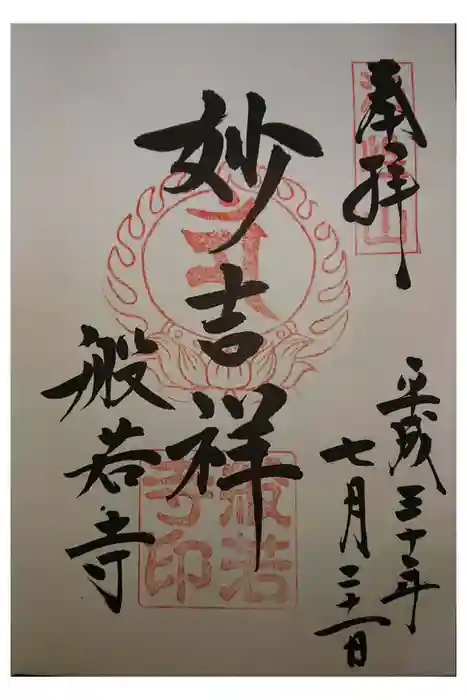 奉拝
平成三十年
七月二十一日
妙吉祥
般若寺
般若
寺印